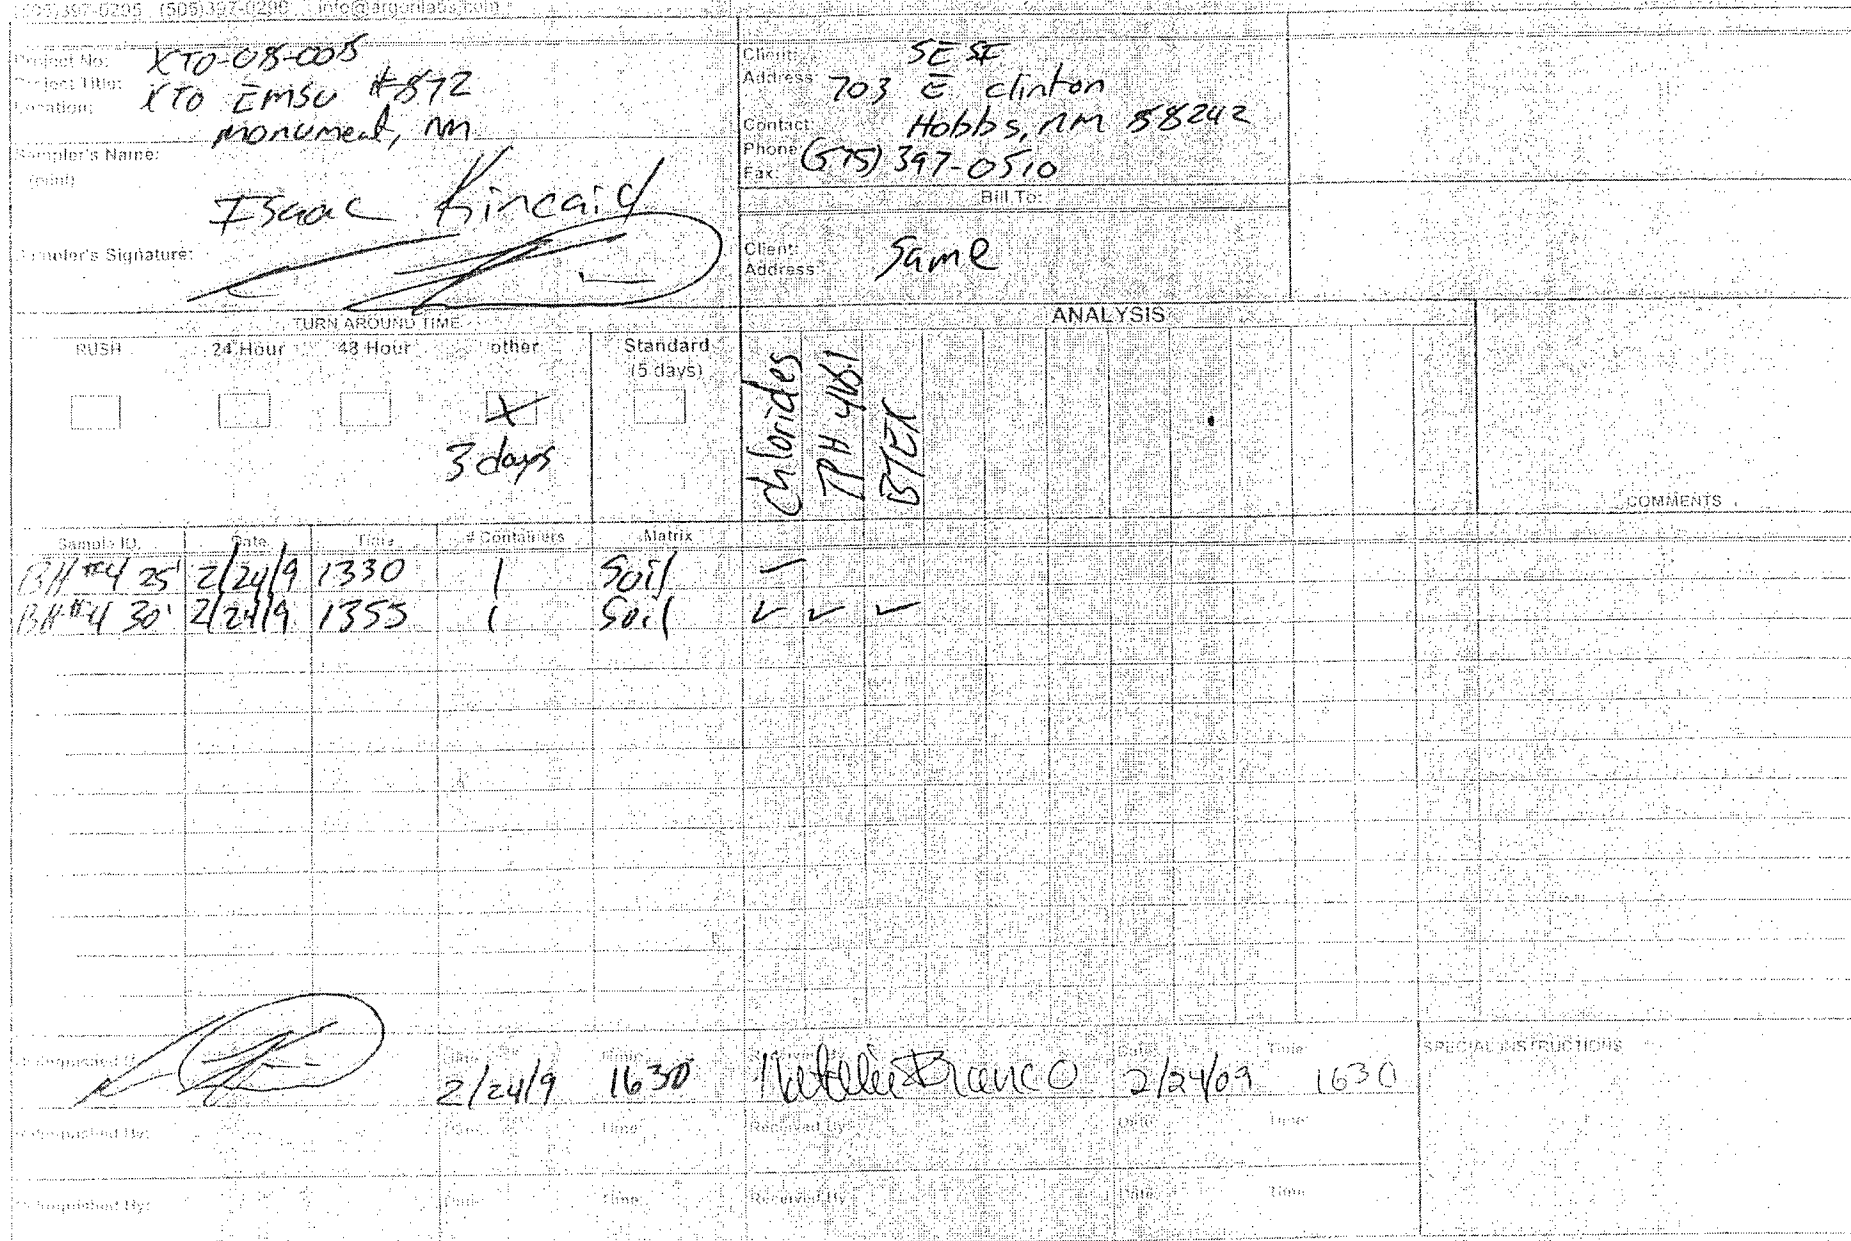 (505)397-0295 (505)397-0296 info@argonlabs.com
Project No: XTO-08-005
Project Title: XTO EMSU #872
Location: monument, nm
Sampler's Name:
(print)
Isaac Kincaid
Sampler's Signature:
Client: SESI
Address: 703 E Clinton
Hobbs, nm 88242
Contact:
Phone: (575) 397-0510
Fax:
Bill To:
Client: Same
Address:
TURN AROUND TIME
RUSH 24 Hour 48 Hour other Standard
(5 days)
X
3 days
ANALYSIS
Chlorides
TPH 418.1
BTEX
COMMENTS
Sample ID. Date Time # Containers Matrix
BH #4 25' 2/24/9 1330 1 Soil ✓
BH #4 30' 2/24/9 1355 1 Soil ✓ ✓ ✓
Relinquished By: Date: 2/24/9 Time: 1630 Received By: Franco Date: 2/24/09 Time: 1630
SPECIAL INSTRUCTIONS
Relinquished By: Date: Time: Received By: Date: Time:
Relinquished By: Date: Time: Received By: Date: Time: